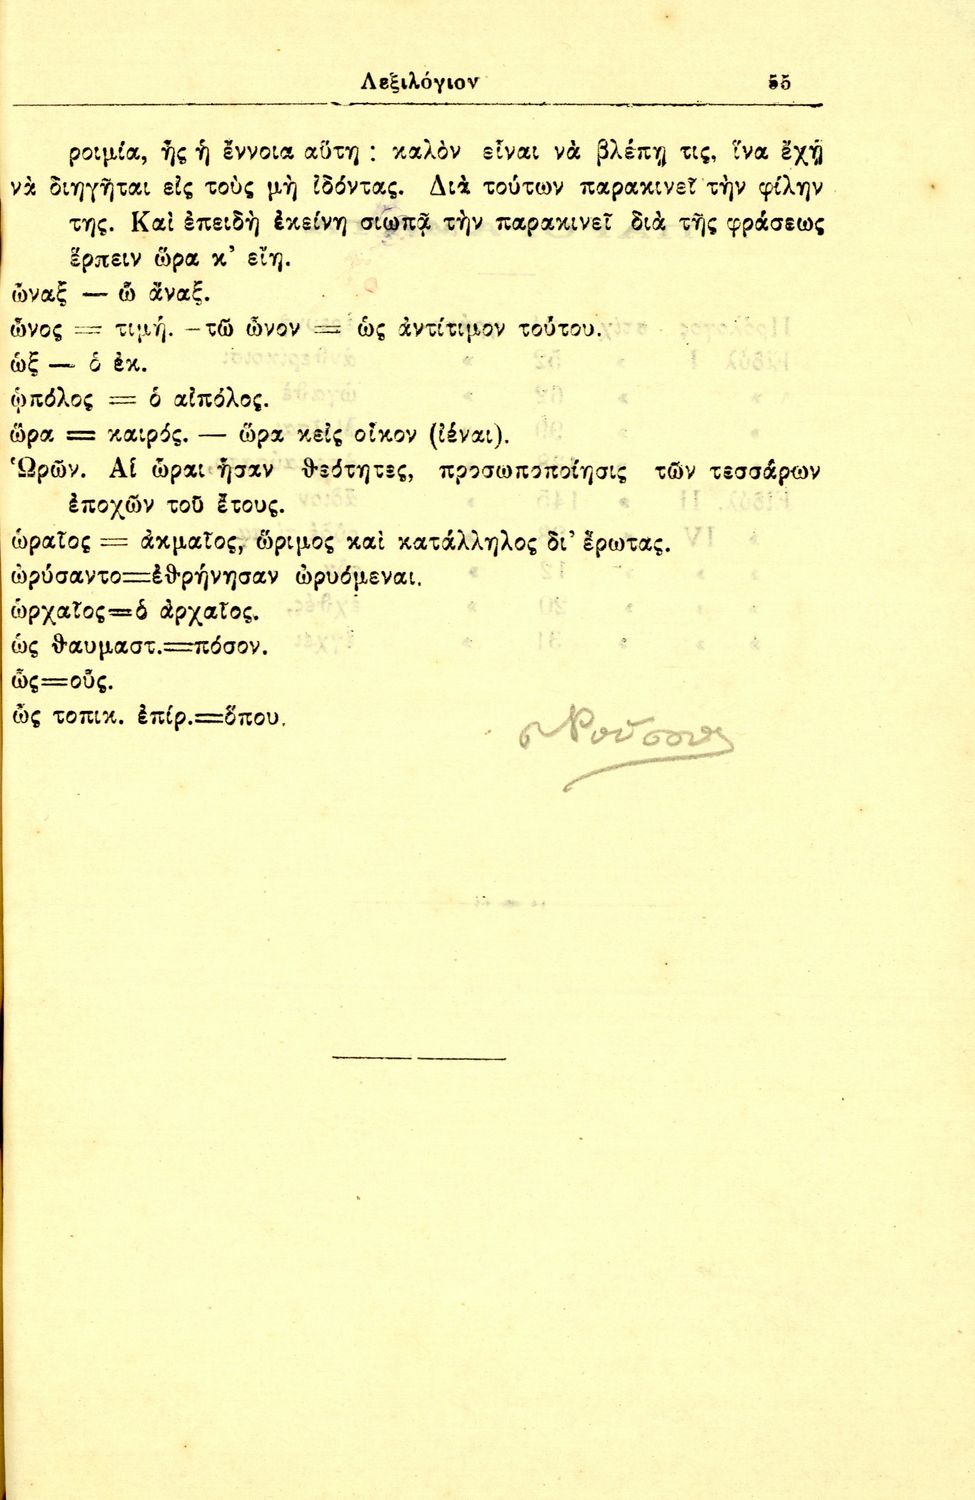 Λεξιλόγιον 55
ροιμία, ἧς ἡ ἔννοια αὕτη : καλὸν εἶναι νὰ βλέπῃ τις, ἵνα ἔχῃ
νὰ διηγῆται εἰς τοὺς μὴ ἰδόντας. Διὰ τούτων παρακινεῖ τὴν φίλην
της. Καὶ ἐπειδὴ ἐκείνη σιωπᾷ τὴν παρακινεῖ διὰ τῆς φράσεως
ἕρπειν ὥρα κ’ εἴη.
ὦναξ — ὦ ἄναξ.
ὦνος = τιμή. -τῶ ὦνον = ὡς ἀντίτιμον τούτου.
ὡξ — ὁ ἐκ.
ᾡπόλος = ὁ αἰπόλος.
ὥρα = καιρός. — ὥρα κεἰς οἶκον (ἰέναι).
Ὡρῶν. Αἱ ὧραι ἦσαν θεότητες, προσωποποίησις τῶν τεσσάρων
ἐποχῶν τοῦ ἔτους.
ὡραῖος = ἀκμαῖος, ὥριμος καὶ κατάλληλος δι’ ἔρωτας.
ὠρύσαντο=ἐθρήνησαν ὠρυόμεναι.
ὡρχαῖος=ὁ ἀρχαῖος.
ὡς θαυμαστ.=πόσον.
ὧς=οὖς.
ὧς τοπικ. ἐπίρ.=ὅπου.